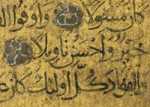 كان مسئولا واوفوا
خير واحسن تاويلا
والفؤاد كل اولئك كان